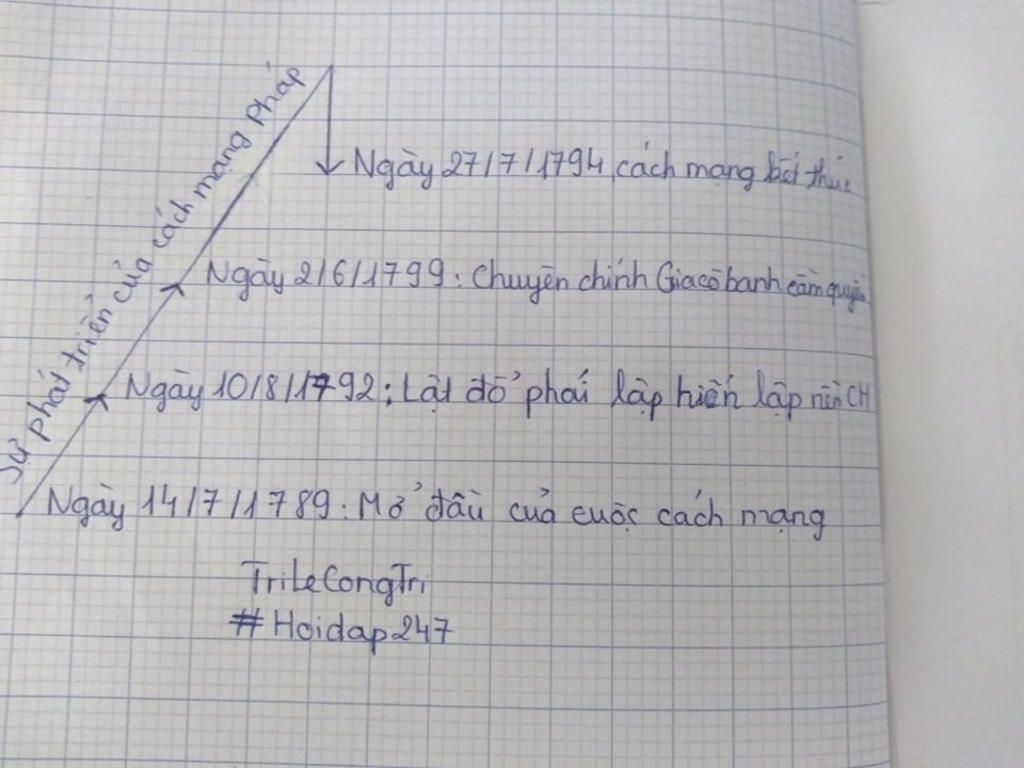 Sự phát triển của cách mạng Pháp
Ngày 27/7/1794, cách mạng kết thúc
Ngày 2/6/1799: Chuyên chính Giacôbanh cầm quyền
Ngày 10/8/1792: Lật đổ phái lập hiến lập nền CH
Ngày 14/7/1789: Mở đầu của cuộc cách mạng
TriLeCongTri
#Hoidap247